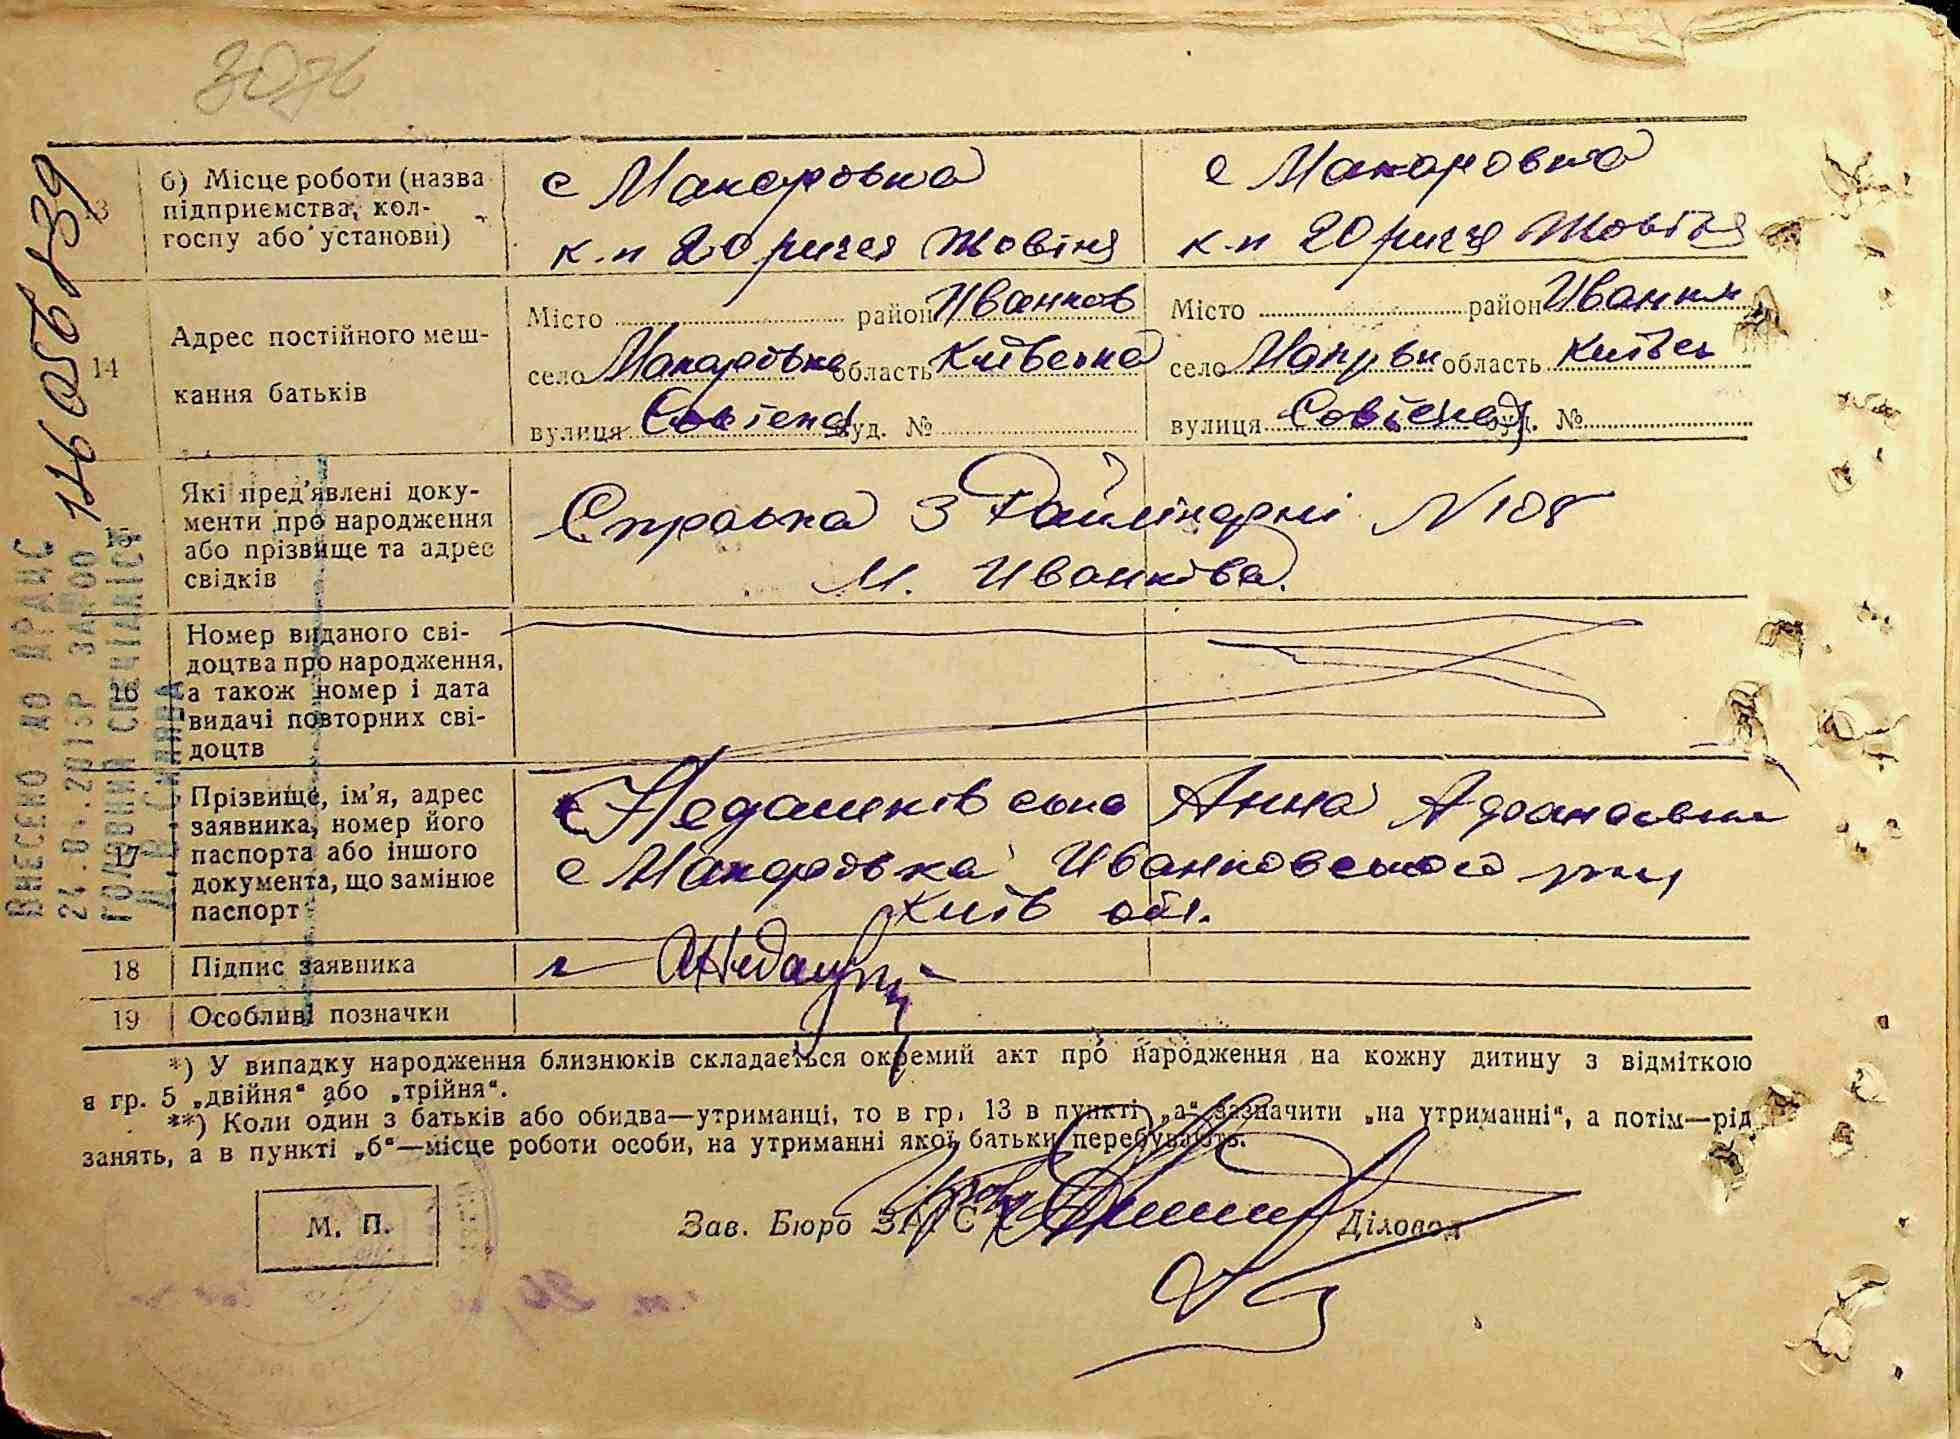 3076
146056139
ВНЕСЕНО ДО ДРАЦС
ГОЛОВНИЙ СПЕЦІАЛІСТ
13 б) Місце роботи (назва підприємства, кол-
госпу або установи)
с Макаровка
к-п 20 риччя Жовтня
с Макаровка
к-п 20 риччя Жовтня
14 Адрес постійного меш-
кання батьків
Місто район Иванков
село Макаровка область Київська
вулиця Совієна буд. №
Місто район Иванк
село область Київськ
вулиця Совієна буд. №
15 Які пред'явлені доку-
менти про народження
або прізвище та адрес
свідків
Справка З Райлікарні N 108
М. Иванкова.
16 Номер виданого сві-
доцтва про народження,
а також номер і дата
видачі повторних сві-
доцтв
17 Прізвище, ім'я, адрес
заявника, номер його
паспорта або іншого
документа, що замінює
паспорт
Недашківська Анна
с Макаровка Иванковського р-ну
Київ обл.
18 Підпис заявника
19 Особливі позначки
*) У випадку народження близнюків складається окремий акт про народження на кожну дитину з відміткою
в гр. 5 „двійня“ або „трійня“.
**) Коли один з батьків або обидва—утриманці, то в гр. 13 в пункті „а“ зазначити „на утриманні“, а потім—рід
занять, а в пункті „б“—місце роботи особи, на утриманні якої батьки перебувають.
М. П.
Зав. Бюро ЗАГС
Діловод